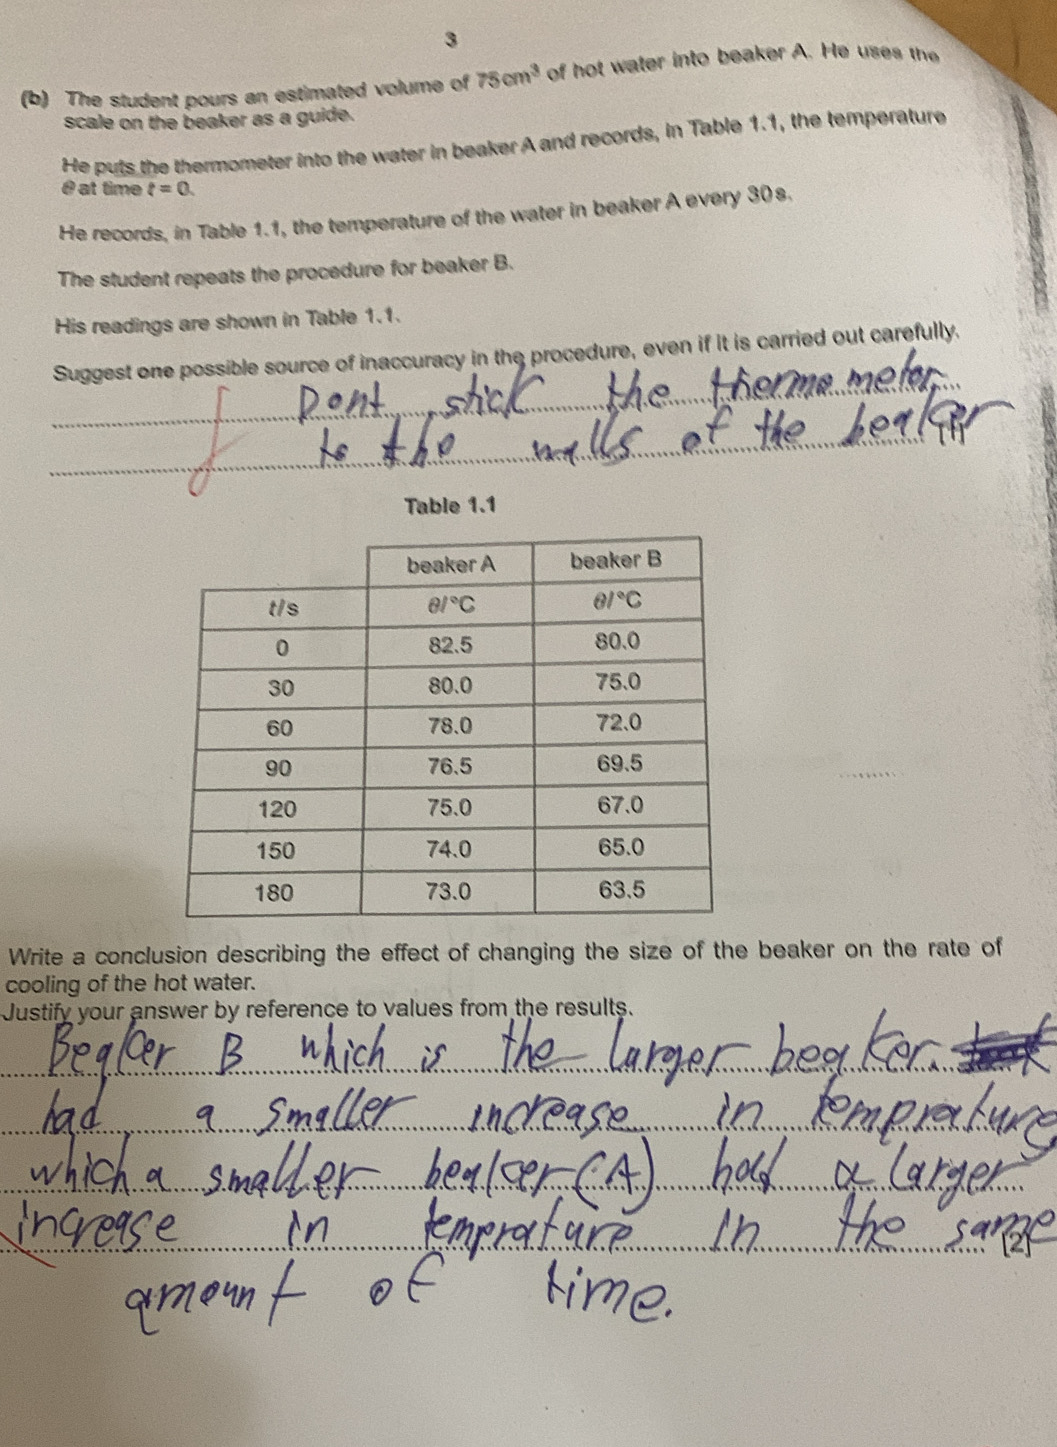 3
(b) The student pours an estimated volume of 75 cm³ of hot water into beaker A. He uses the
scale on the beaker as a guide.
He puts the thermometer into the water in beaker A and records, in Table 1.1, the temperature
θ at time t = 0.
He records, in Table 1.1, the temperature of the water in beaker A every 30 s.
The student repeats the procedure for beaker B.
His readings are shown in Table 1.1.
Suggest one possible source of inaccuracy in the procedure, even if it is carried out carefully.
Dont stick the thermometer
to the walls of the beaker [1]
Table 1.1
beaker A beaker B
t/s θ/°C θ/°C
0 82.5 80.0
30 80.0 75.0
60 78.0 72.0
90 76.5 69.5
120 75.0 67.0
150 74.0 65.0
180 73.0 63.5
Write a conclusion describing the effect of changing the size of the beaker on the rate of
cooling of the hot water.
Justify your answer by reference to values from the results.
Beaker B which is the larger beaker.
had a smaller increase in temprature
which a smaller beaker (A) had a larger
increase in temprature in the same [2]
amount of time.